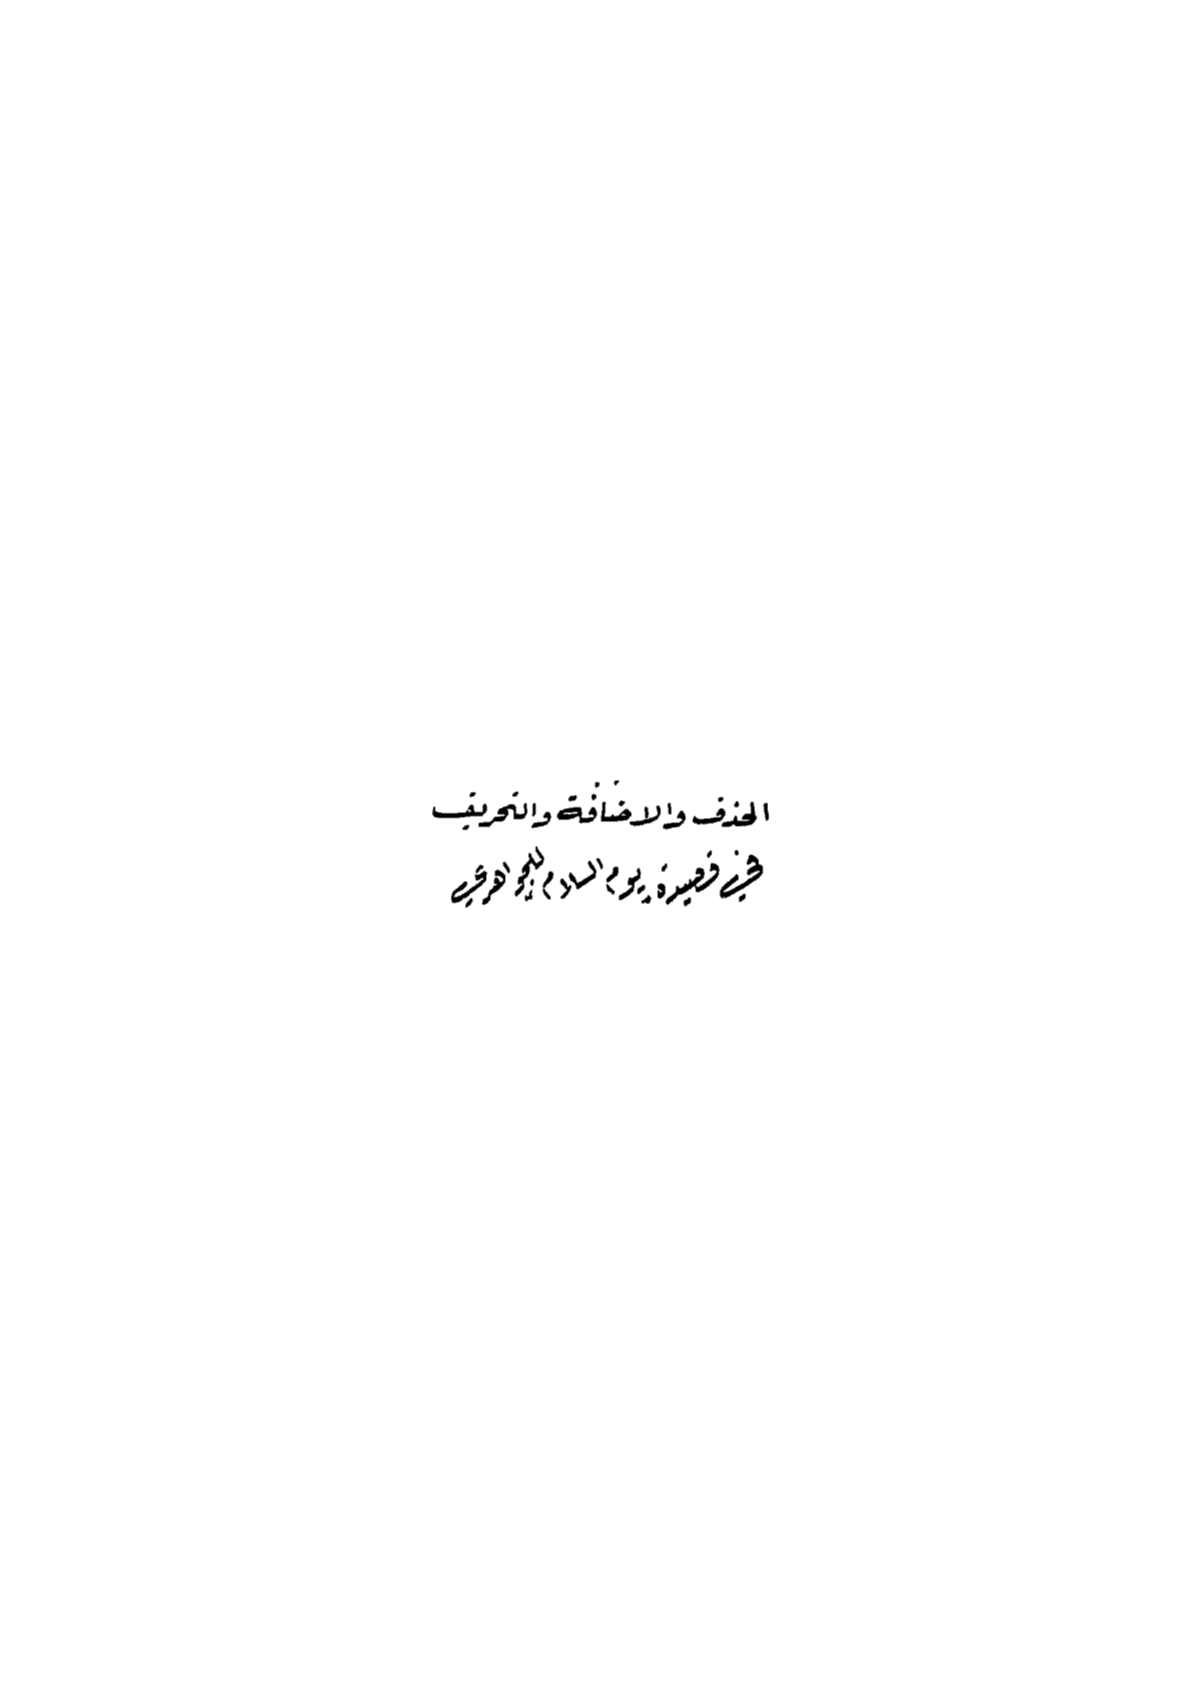 الحذف والاضافة والتحريف
في قصيدة يوم السلام للجواهري